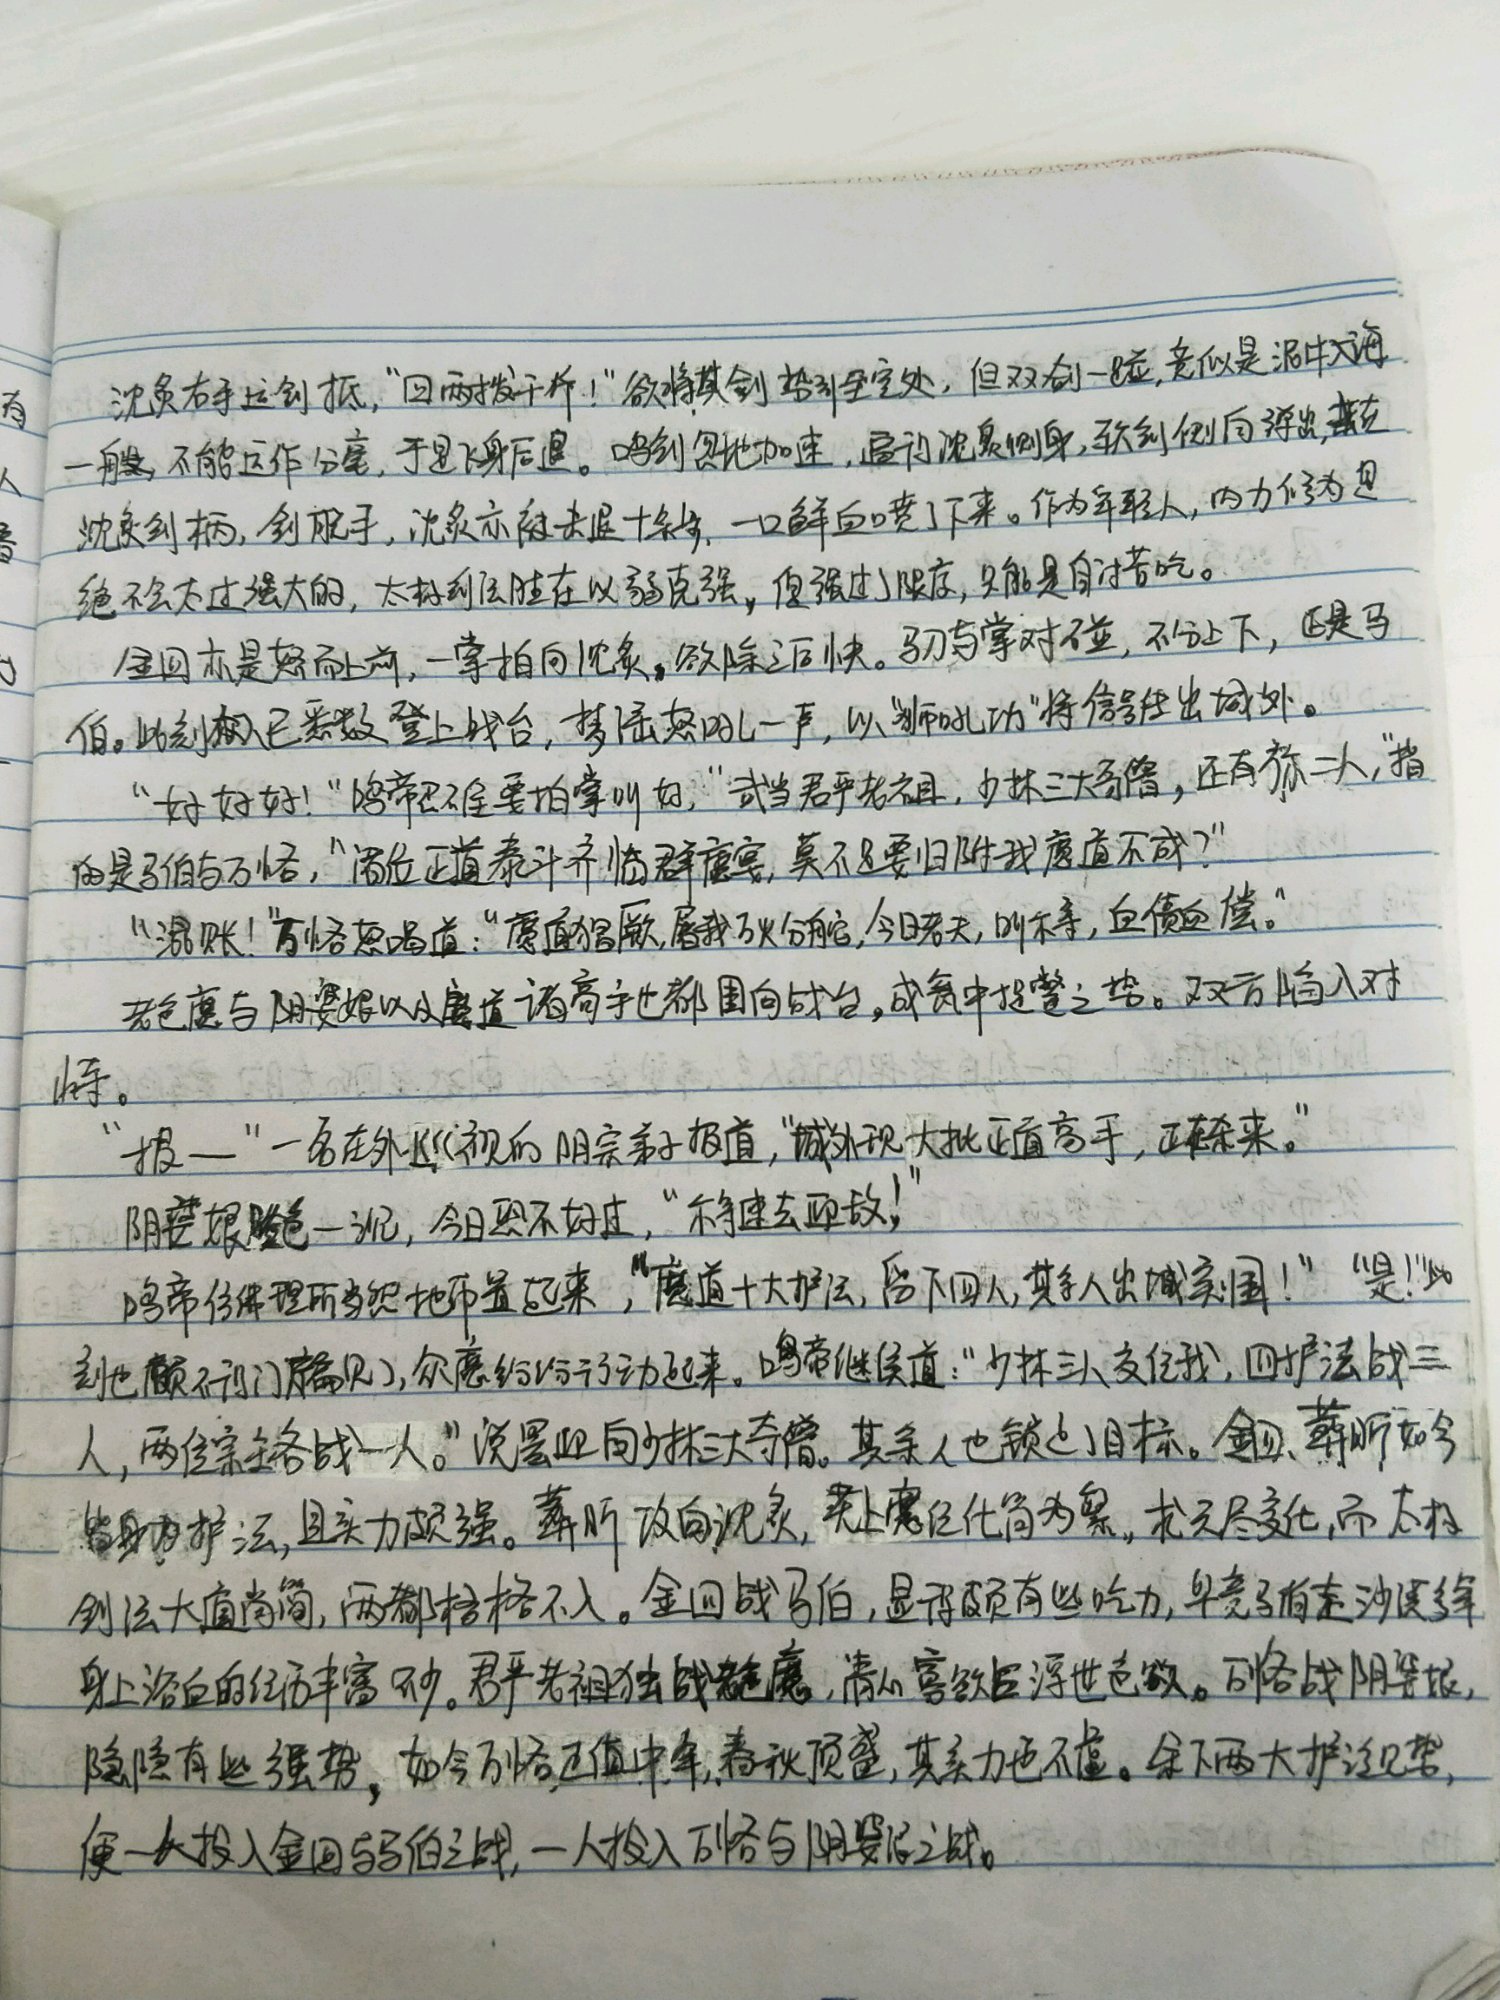 沈炙右手运剑抵，“四两拨千斤！”欲将其剑势引至空处，但双剑一碰，竟似是泥牛入海
一般，不能运作分毫，于是飞身后退。鸣剑忽地加速，逼讨沈炙侧身，软剑侧向弹出，击在
沈炙剑柄，剑脱手，沈炙亦被击退十余步，一口鲜血喷了下来。作为年轻人，内力修为是
绝不会太过强大的，太极剑法胜在以弱克强，但强过了限度，只能是自讨苦吃。
金回亦是怒而上前，一掌拍向沈炙，欲除之后快。马刀与掌对碰，不分上下，正是马
伯。此刻 人已悉数登上战台，梦 怒吼一声，以“狮吼功”将信号传出城外。
“好好好！”鸣帝忍不住要拍掌叫好，“武当君平老祖，少林三大奇僧，还有你二人，”指
的是马伯与万恪，“诸位正道泰斗齐临群魔宴，莫不是要归附我魔道不成？”
“混账！”万恪怒喝道：“魔道猖厥，屠我万火分舵，今日老夫，叫 ，血债血偿。”
老色魔与阴婆娘以及魔道诸高手也都围向战台，成瓮中捉鳖之势。双方陷入对
恃。
“报—”一名在外巡视的阴宗弟子报道，“城外现大批正道高手，正在杀来。”
阴婆娘脸色一沉，今日恐不好过，“ 速去迎敌！”
鸣帝仿佛理所当然地布置起来，“魔道十大护法，留下四人，其余人出城突围！”“是！”此
刻也顾不讨门户偏见，众魔纷纷行动起来。鸣帝继续道：“少林三人交住我，四护法战三
人，两位宗主各战一人。”说罢迎向少林三大奇僧。其余人也锁定了目标。金回、 昕如今
皆身为护法，且实力颇强。 昕攻向沈炙，无上魔 化简为繁，招式尽变化，而太极
剑法大道尚简，两都格格不入。金回战马伯，显得颇有些吃力，毕竟马伯走沙漠多年
身上浴血的经历丰富不少。君平老祖独战老色魔，清心寡欲 浮世色欲。万恪战阴婆娘，
隐隐有些强势，如今万恪正值中年，春秋顶盛，其实力也不虚。余下两大护法见势，
便一人投入金回与马伯之战，一人投入万恪与阴婆娘之战。